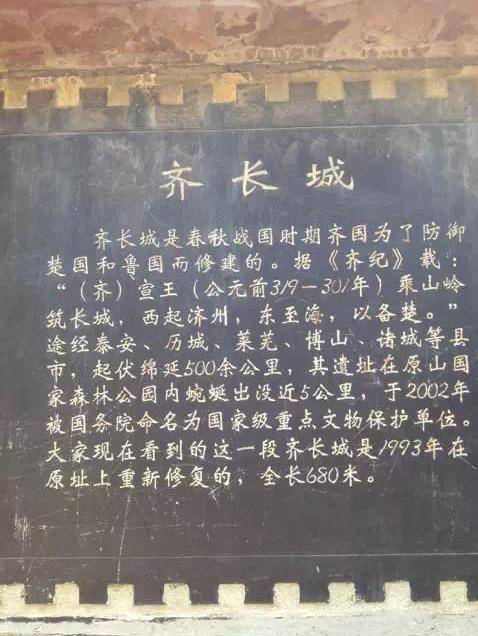 齐长城
齐长城是春秋战国时期齐国为了防御
楚国和鲁国而修建的。据《齐纪》载：
“（齐）宣王（公元前319—301年）乘山岭
筑长城，西起济州，东至海，以备楚。”
途经泰安、历城、莱芜、博山、诸城等县
市，起伏绵延500余公里，其遗址在原山国
家森林公园内蜿蜒出没近5公里，于2002年
被国务院命名为国家级重点文物保护单位。
大家现在看到的这一段齐长城是1993年在
原址上重新修复的，全长680米。